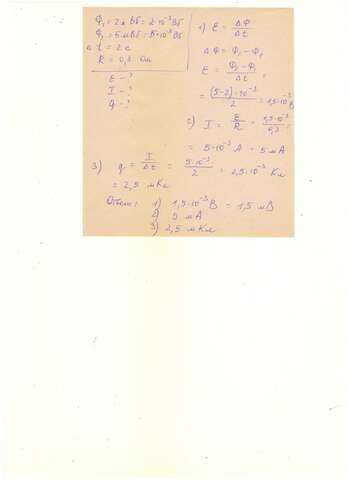 Ф₁ = 2 мВб = 2·10⁻³ Вб
Ф₂ = 5 мВб = 5·10⁻³ Вб
Δt = 2 с
R = 0,3 Ом
Ɛ - ?
I - ?
q - ?
1) Ɛ = ΔФ/Δt
ΔФ = Ф₂ - Ф₁
Ɛ = (Ф₂ - Ф₁)/Δt =
= (5-2)·10⁻³/2 = 1,5·10⁻³ В
2) I = Ɛ/R = 1,5·10⁻³/0,3 =
= 5·10⁻³ А = 5 мА
3) q = I/Δt = 5·10⁻³/2 = 2,5·10⁻³ Кл
= 2,5 мКл
Ответ: 1) 1,5·10⁻³ В = 1,5 мВ
2) 5 мА
3) 2,5 мКл